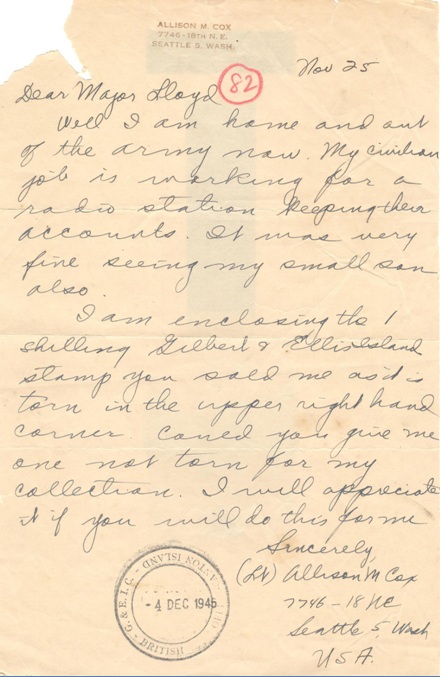 ALLISON M. COX
7746-18TH N.E.
SEATTLE 5, WASH.
Nov 25
82
Dear Major Lloyd
Well I am home and out
of the army now. My civilian
job is working for a
radio station keeping their
accounts. It was very
fine seeing my small son
also.
I am enclosing the 1
shilling Gilbert & Ellis Island
stamp you sold me as it is
torn in the upper right hand
corner. Could you give me
one not torn for my
collection. I will appreciate
it if you will do this for me
Sincerely,
(Lt) Allison M Cox
7746-18 NE
Seattle 5, Wash
U.S.A.
G. & E.I.C. - CANTON ISLAND - BRITISH
- 4 DEC 1945